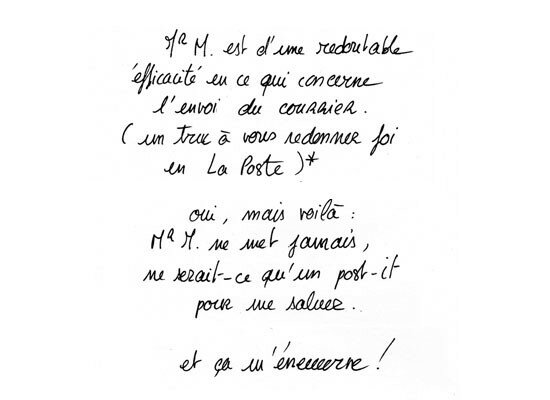 MR M. est d'une redoutable
éfficacité en ce qui concerne
l'envoi du courrier.
( un truc à vous redonner foi
en La Poste )*
oui, mais voilà :
MR M. ne met jamais,
ne serait-ce qu'un post-it
pour me saluer.
et ça m'éneeeerve !